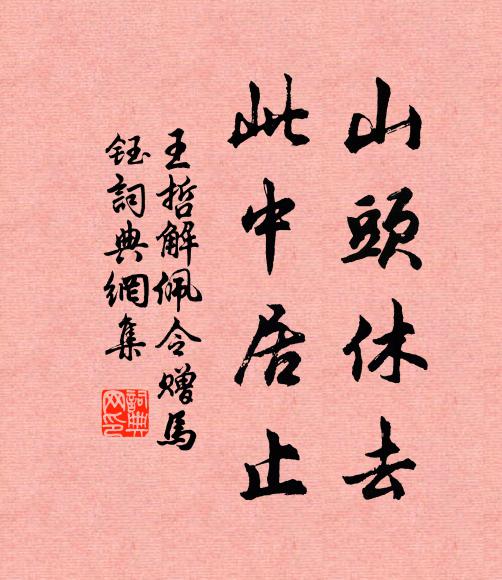 山頭休去
此中居止
王哲解佩令赠馬
鈺詞典網集
詞典网印